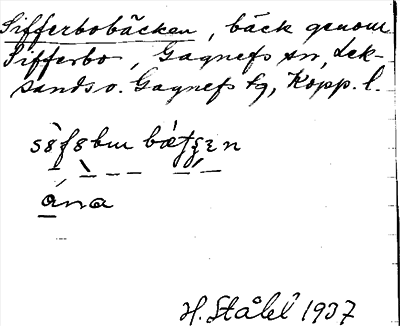 Sifferbobäcken, bäck genom
Sifferbo, Gagnefs sn, Lek-
sands o. Gagnefs tg, Kopp. l.
ána
H. Ståhl 1937